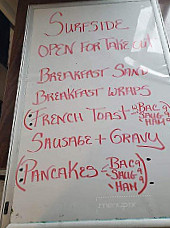 SURFSIDE
OPEN FOR TAKE OUT
BREAKFAST SAND
BREAKFAST WRAPS
(FRENCH TOAST - BAC
SAUG
HAM
SAUSAGE + GRAVY
(PANCAKES - BAC
SAUG
HAM)